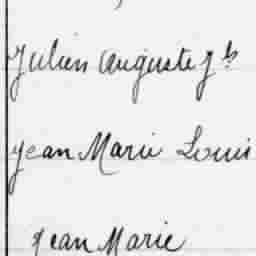 Julien Auguste Jh
Jean Marie Louis
Jean Marie